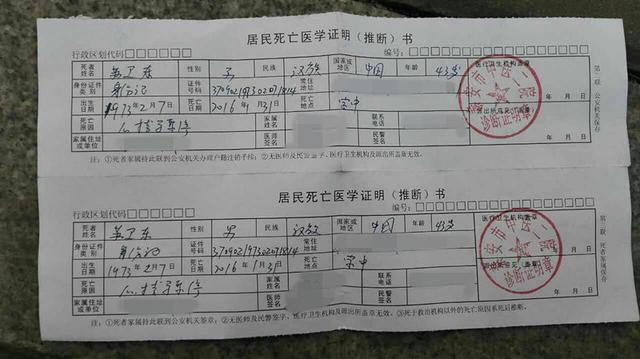 居民死亡医学证明（推断）书
行政区划代码□□□□□□ 编号：
死者姓名 姜卫东 性别 男 民族 汉族 国家或地区 中国 年龄 43岁 医疗卫生机构盖章
身份证件类别 身份证 证件号码 常住地址
出生日期 1973年2月7 死亡日期 2016年1月31 死亡地点 家中 年 月 日
死亡原因 心梗 家属姓名 联系电话
家属住址或单位 医师签名 民警签名 年 月 日
注：①死者家属持此联到公安机关办理户籍注销手续；②无医师及民警签字、医疗卫生机构及派出所盖章无效。
第二联 公安机关保存
安市中医二
诊断证明章
居民死亡医学证明（推断）书
行政区划代码□□□□□□ 编号：
死者姓名 姜卫东 性别 男 民族 汉族 国家或地区 中国 年龄 43岁 医疗卫生机构盖章
身份证件类别 身份证 证件号码 常住地址
出生日期 1973年2月7 死亡日期 2016年1月31 死亡地点 家中 派出所意见（盖章） 年 月 日
死亡原因 心梗 家属姓名 联系电话
家属住址或单位 医师签名 民警签名 年 月 日
注：①死者家属持此联到公安机关签章；②无医师及民警签字、医疗卫生机构及派出所盖章无效。③死于救治机构以外的死亡原因系死后推断。
第三联 死者家属保存
安市中医二
诊断证明章